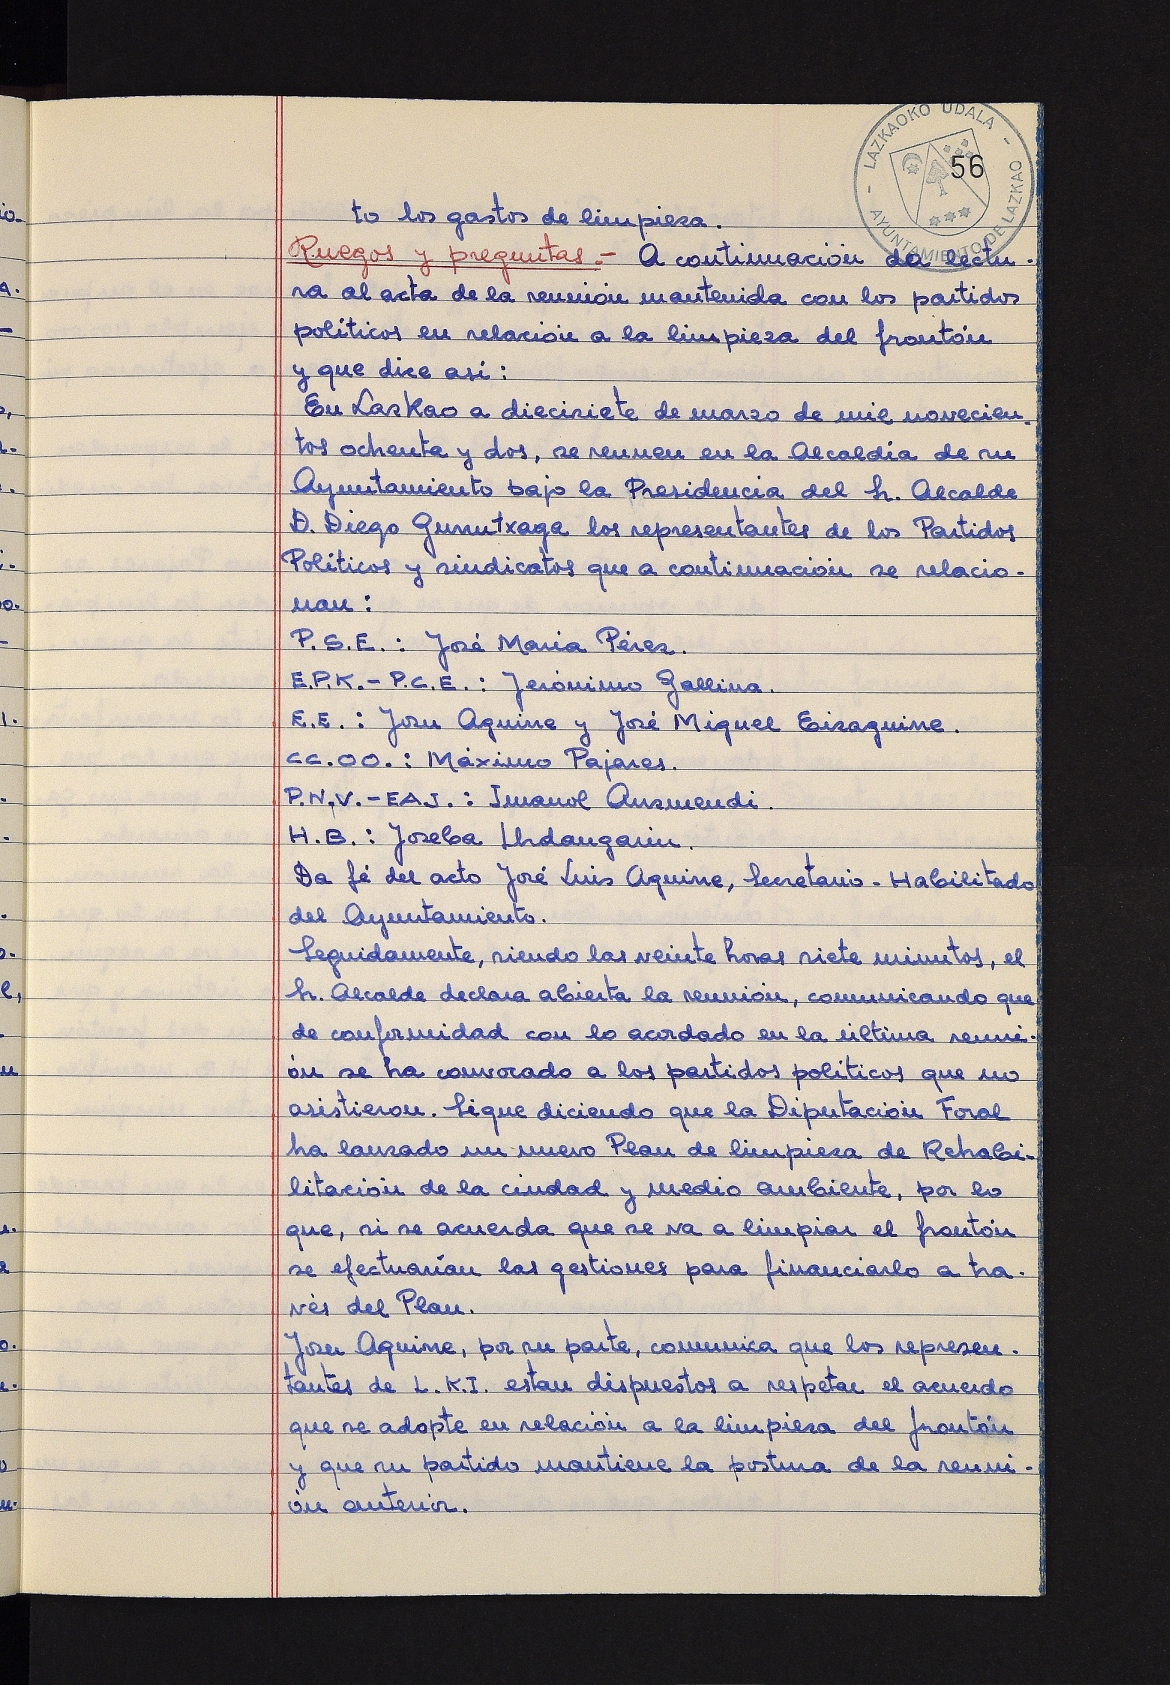 LAZKAOKO UDALA - AYUNTAMIENTO DE LAZKAO -
56
to los gastos de limpieza.
Ruegos y preguntas.- A continuación da lectu-
ra al acta de la reunión mantenida con los partidos
políticos en relación a la limpieza del frontón
y que dice así:
En Lazkao a diecisiete de marzo de mil novecien-
tos ochenta y dos, se reunen en la Alcaldía de su
Ayuntamiento bajo la Presidencia del Sr. Alcalde
D. Diego Gurrutxaga los representantes de los Partidos
Políticos y sindicatos que a continuación se relacio-
nan:
P.S.E.: José María Pérez.
E.P.K.-P.C.E.: Jerónimo Gallina.
E.E.: Josu Aguirre y José Miguel Eizaguirre.
CC.OO.: Máximo Pajares.
P.N.V.-EAJ.: Imanol Auzmendi.
H.B.: Joseba Urdangarin.
Da fé del acto José Luis Aguirre, Secretario-Habilitado
del Ayuntamiento.
Seguidamente, siendo las veinte horas siete minutos, el
Sr. Alcalde declara abierta la reunión, comunicando que
de conformidad con lo acordado en la última reuni-
ón se ha convocado a los partidos políticos que no
asistieron. Sigue diciendo que la Diputación Foral
ha lanzado un nuevo Plan de limpieza de Rehabi-
litación de la ciudad y medio ambiente, por lo
que, si se acuerda que se va a limpiar el frontón
se efectuarían las gestiones para financiarlo a tra-
vés del Plan.
Josu Aguirre, por su parte, comunica que los represen-
tantes de L.K.I. estan dispuestos a respetar el acuerdo
que se adopte en relación a la limpieza del frontón
y que su partido mantiene la postura de la reuni-
ón anterior.